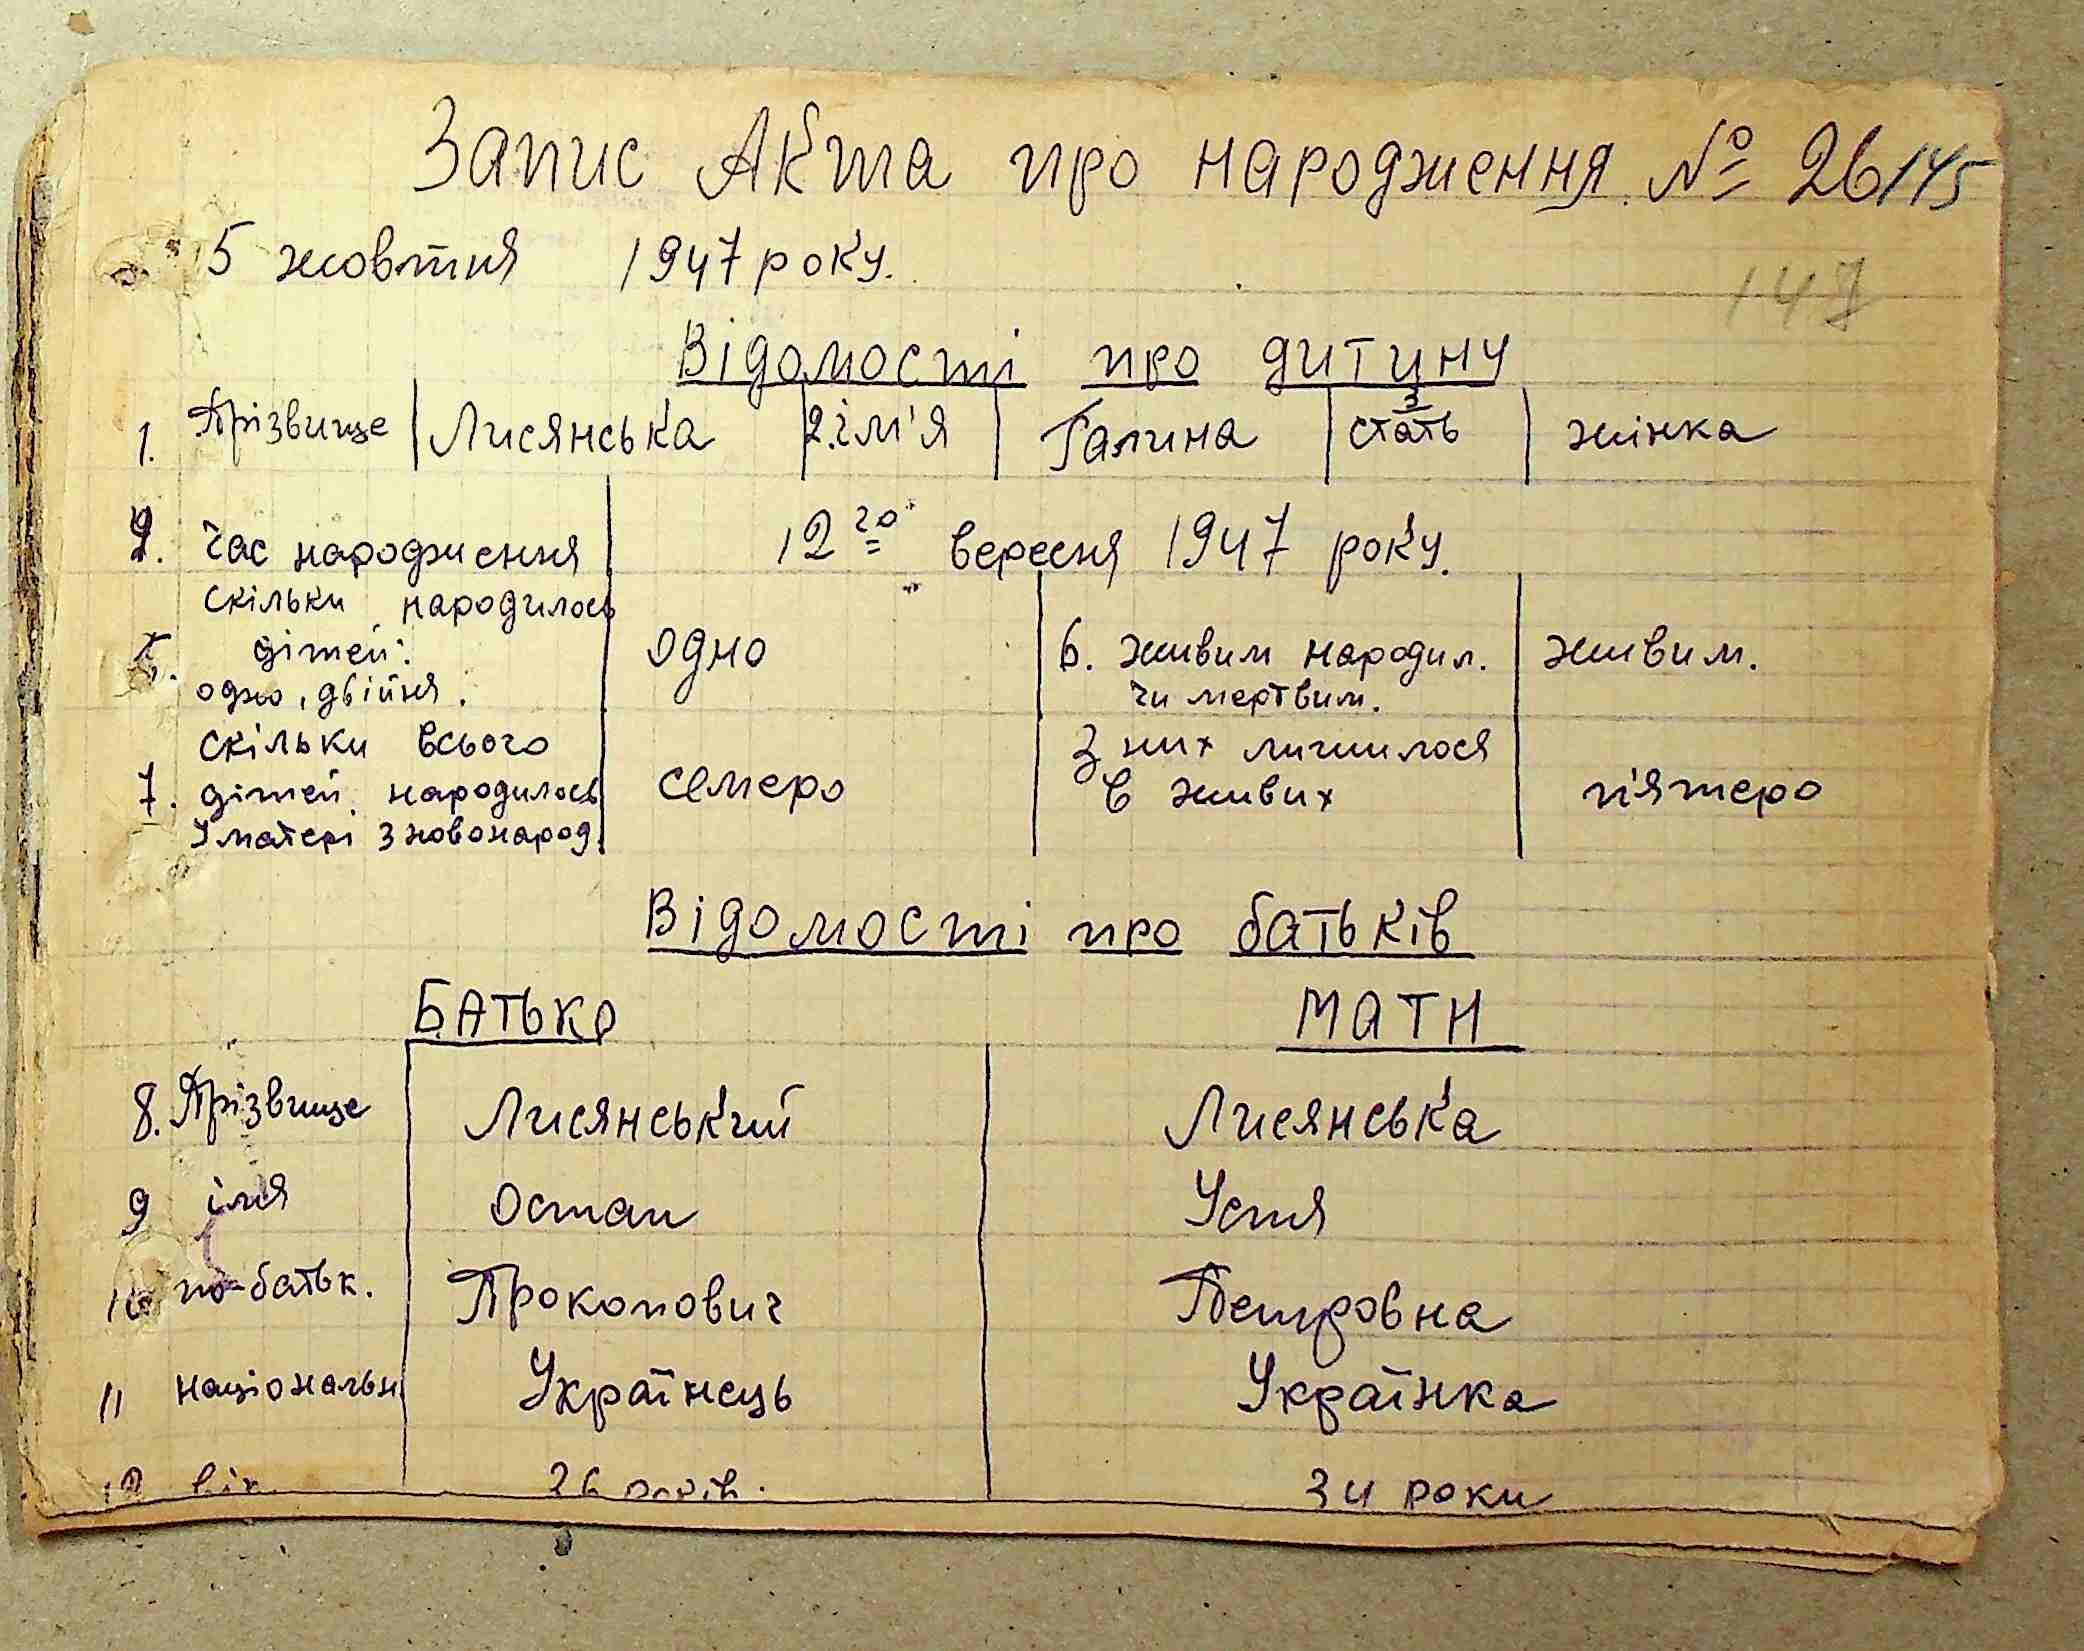 Запис Акта про народження № 26/145
5 жовтня 1947 року.
147
Відомості про дитину
1. Прізвище Лисянська 2. ім'я Галина 3 стать жінка
Час народження 12го вересня 1947 року.
скільки народилось
5. дітей: одно 6. живим народил. живим.
одно, двійня. чи мертвим.
скільки всього З них лишилося
7. дітей народилось семеро в живих п'ятеро
у матері з новонарод.
Відомості про батьків
БАТЬКО МАТИ
8. Прізвище Лисянський Лисянська
9 імя Остап Устя
10 по-батьк. Прокопович Петровна
11 національн Українець Українка
12 вік 36 років. 34 роки